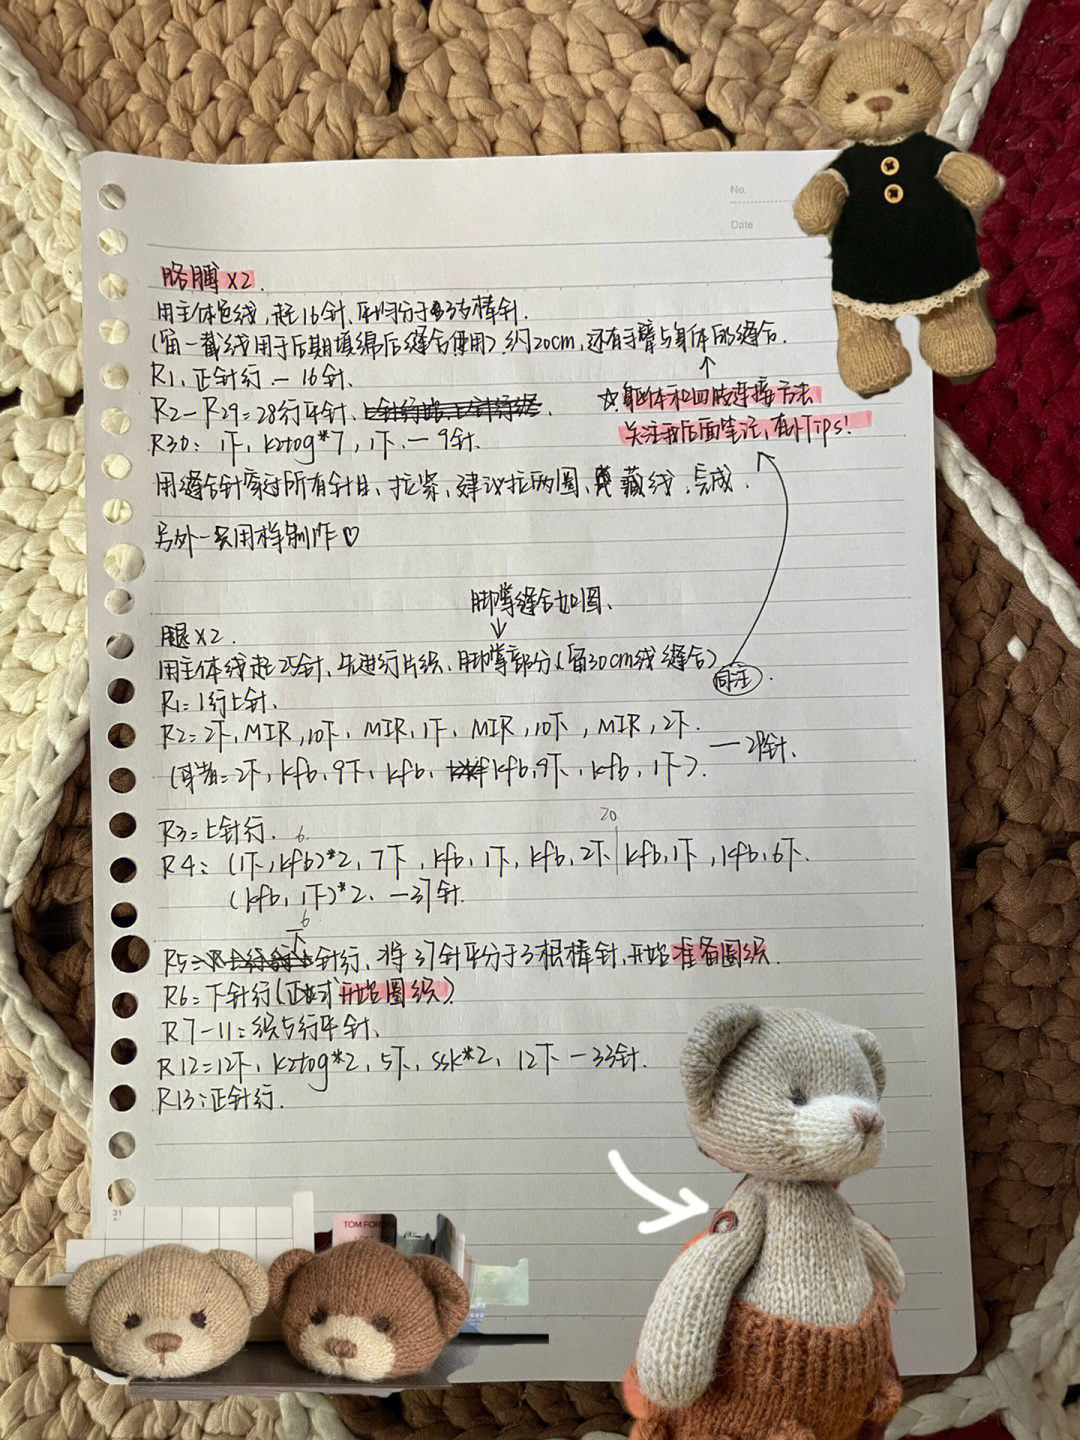 No.
Date
胳膊 x2.
用主体色线,起16针、平均分于3支棒针.
(留一截线用于后期填绵后缝合使用).约20cm,还有手臂与身体的缝合.
R1、正针行.—16针.
☆躯体和四肢连接方法
R2-R29=28行平针、
关注我后面笔记,有小Tips!
R30: 1下, k2tog*7, 1下.—9针.
用缝合针穿过所有针目、拉紧、建议拉两圈、藏线.完成.
另外一只同样制作♡
脚掌缝合如图.
腿 x2.
用主体线起25针、先进行片织,脚掌部分(留30cm线缝合)
同注.
R1=1行上针.
R2=2下, M1R, 10下, M1R, 1下, M1R, 10下, M1R, 2下.
(或者=2下, kfb, 9下, kfb, kfb, 9下, kfb, 1下).—29针.
R3=上针行.
6. 20
R4: (1下, kfb)*2, 7下, kfb, 1下, kfb, 2下|kfb, 1下, kfb, 6下.
(kfb, 1下)*2、—37针.
6
R5= 下针行, 将37针平分于3根棒针,开始准备圈织.
R6=下针行(正式开始圈织).
R7-11=织5行平针.
R12=12下, k2tog*2, 5下, ssk*2, 12下—33针.
R13:正针行.
31
TOM FORD